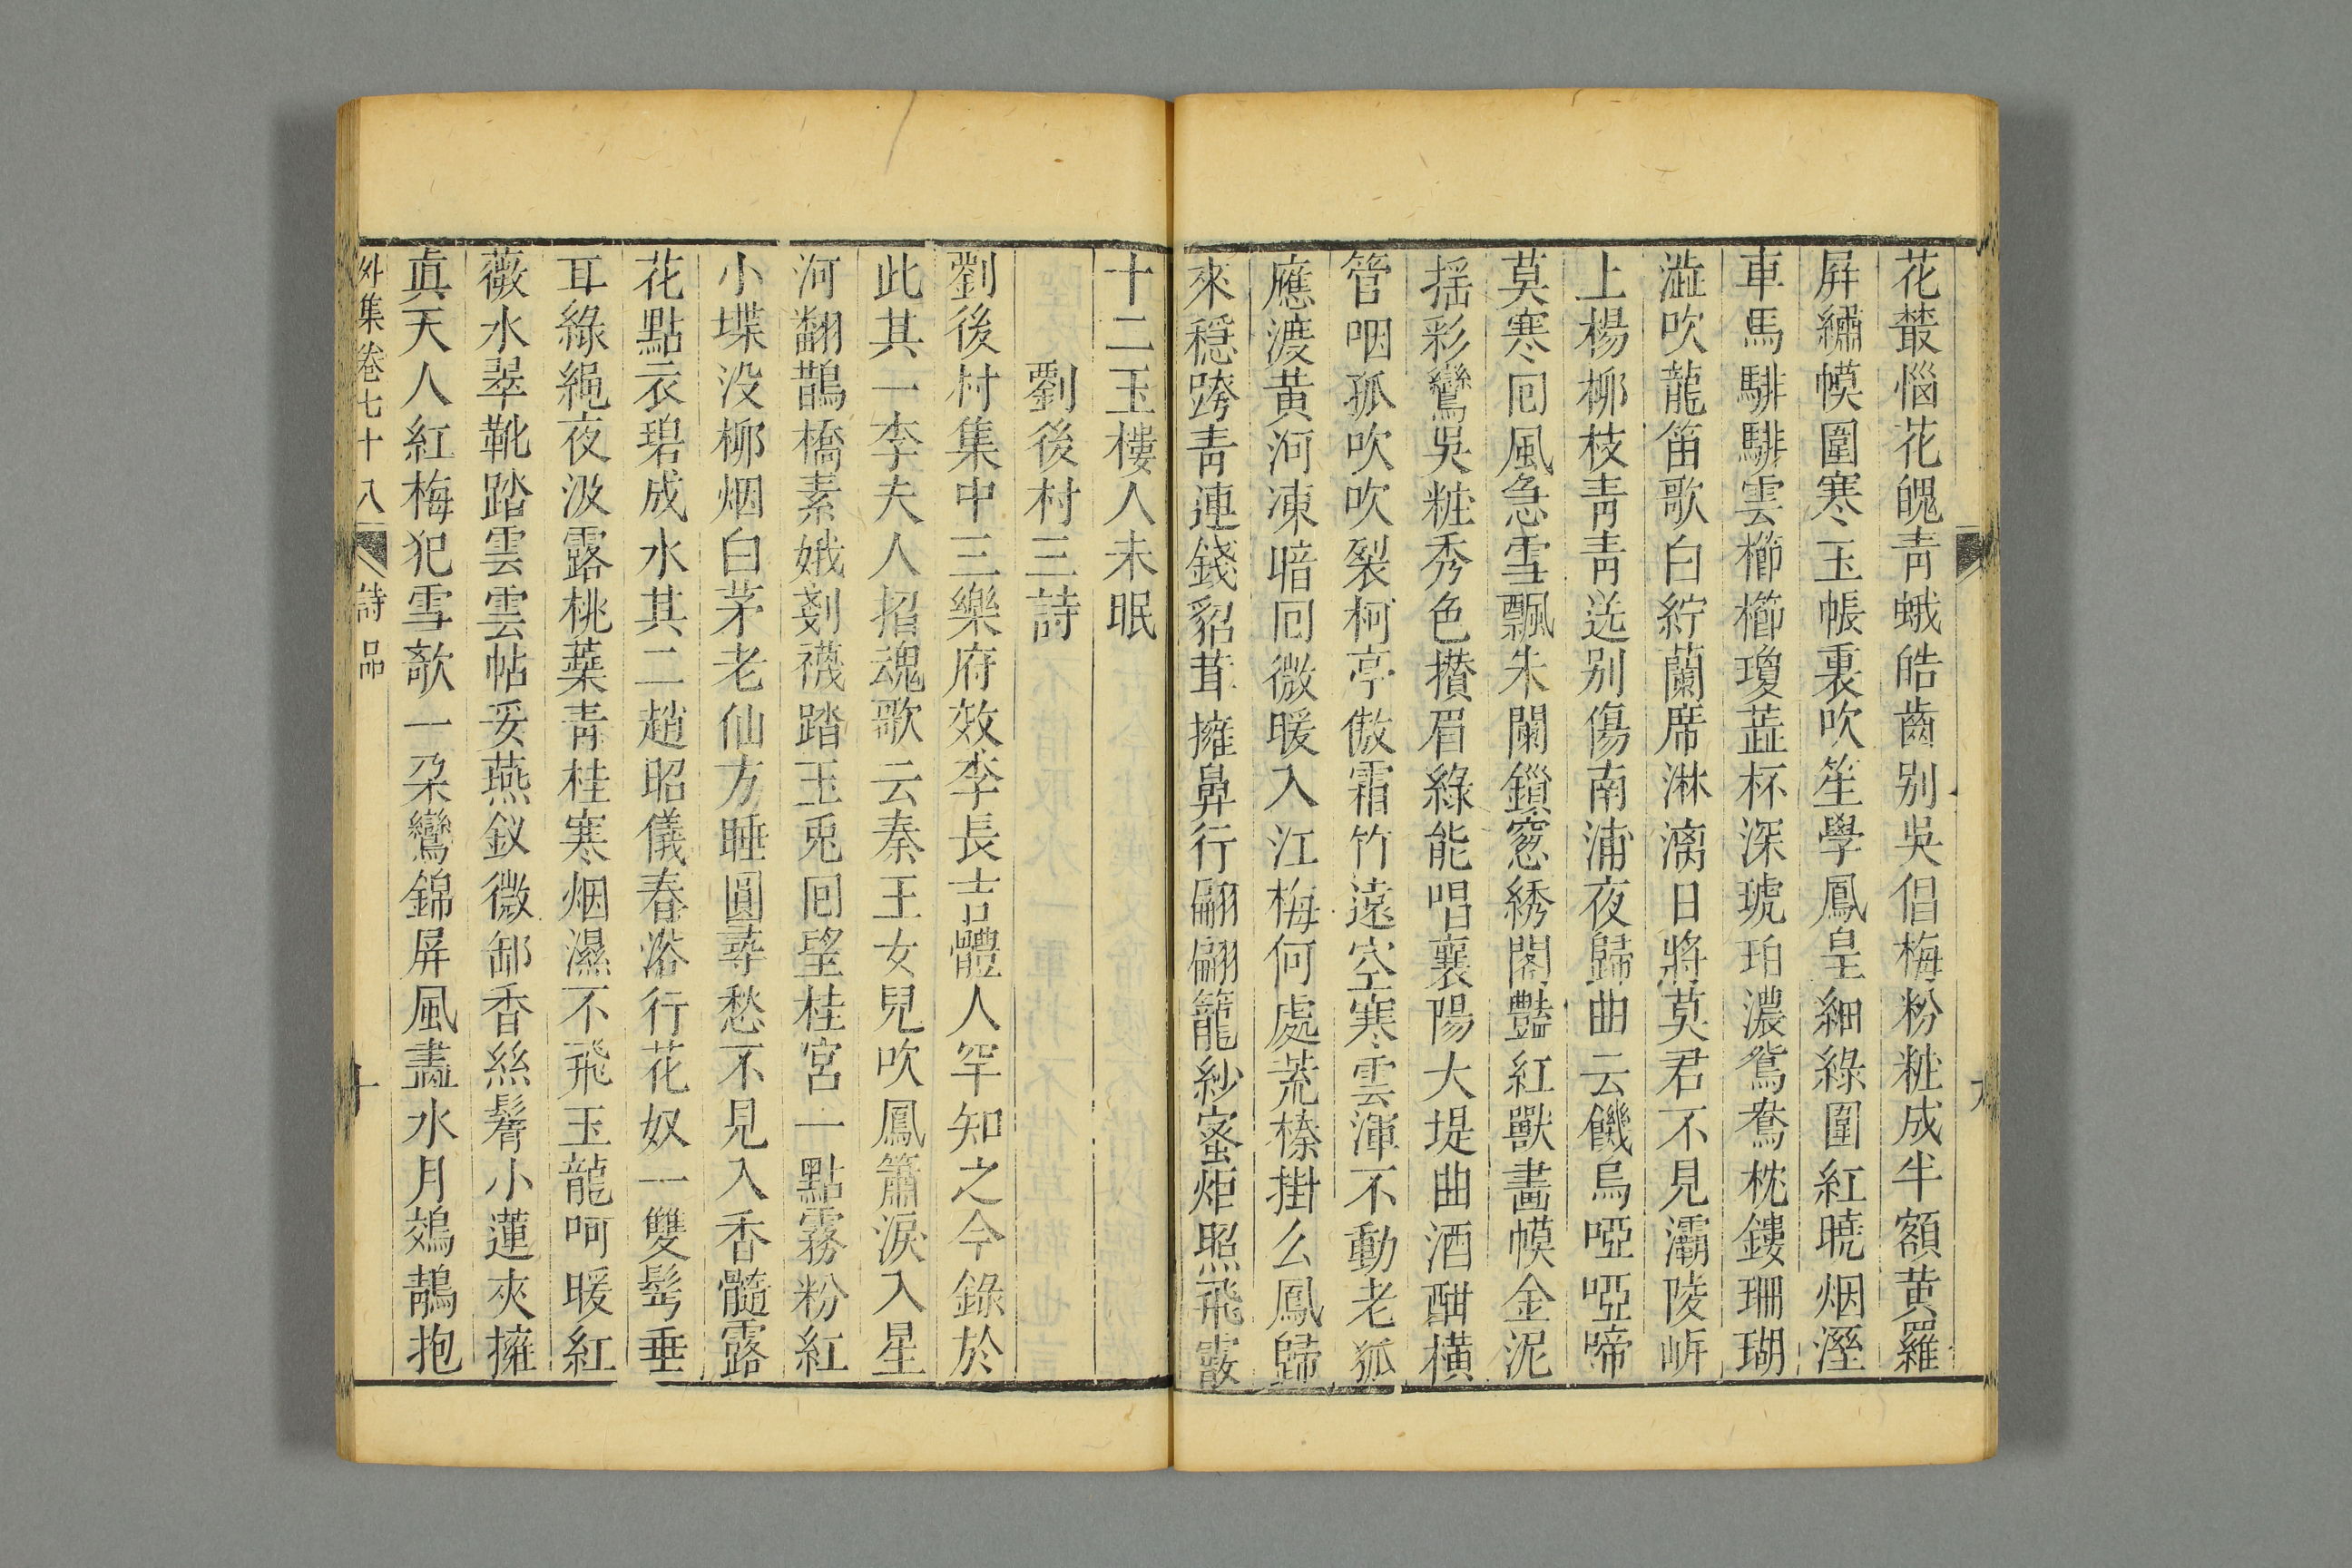 花叢惱花魄青蛾皓齒别吳倡梅粉粧成半額黄羅
屛繡幙圍寒玉帳裏吹笙學鳳皇細綠圍紅曉烟溼
車馬騑騑雲櫛櫛瓊蕋杯深琥珀濃鴛鴦枕鏤珊瑚
澁吹龍笛歌白紵蘭席淋漓日將莫君不見灞陵岍
上楊柳枝青青送别傷南浦夜歸曲云饑烏啞啞啼
莫寒回風急雪飄朱闌鎻窓綉閣豔紅獸畵幙金泥
揺彩鸞吳粧秀色攢眉綠能唱襄陽大堤曲酒酣横
管咽孤吹吹裂柯亭傲霜竹遠空寒雲渾不動老狐
應渡黄河凍暗回微暖入江梅何處荒榛掛么鳳歸
來穏跨青連錢貂茸擁鼻行翩翩籠紗蜜炬照飛霰
十二玉樓人未眠
劉後村三詩
劉後村集中三樂府效李長吉體人罕知之今錄於
此其一李夫人招魂歌云秦王女兒吹鳳簫淚入星
河翻鵲橋素娥剗襪踏玉兎回望桂宮一點霧粉紅
小堞没柳烟白茅老仙方睡圓尋愁不見入香髓露
花點衣碧成水其二趙昭儀春浴行花奴一雙髩垂
耳綠繩夜汲露桃蘂青桂寒烟濕不飛玉龍呵暖紅
薇水翠靴踏雲雲帖妥燕釵微卸香絲鬌小蓮夾擁
眞天人紅梅犯雪欹一朶鸞錦屏風畵水月鵁鶄抱
外集卷七十八
詩品
十